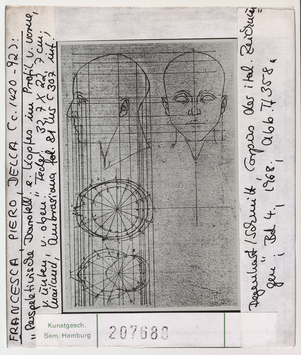 FRANCESCA, PIERO DELLA (c. 1420-92):
"Perspektivische Darstell. e. Kopfes im Profil v. vorne,
unten, v. oben" Feder 31,7 x 21,7 cm
Mailand, Ambrosiana fol. 81 Ms C 307 inf.,
Degenhart/Schmitt, Corpus der ital. Zeichnun-
gen, Bd. 4, 1968. Abb 7/358a
Kunstgesch.
Sem. Hamburg
207680